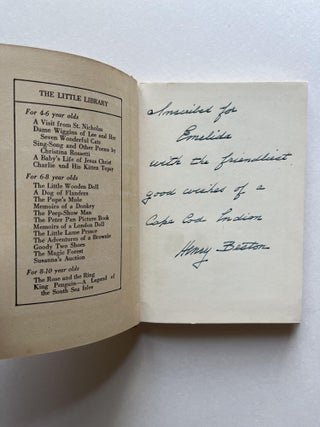 THE LITTLE LIBRARY
For 4-6 year olds
A Visit from St. Nicholas
Dame Wiggins of Lee and Her
Seven Wonderful Cats
Sing-Song and Other Poems by
Christina Rossetti
A Baby's Life of Jesus Christ
Charlie and His Kitten Topsy
For 6-8 year olds
The Little Wooden Doll
A Dog of Flanders
The Pope's Mule
Memoirs of a Donkey
The Peep-Show Man
The Peter Pan Picture Book
Memoirs of a London Doll
The Little Lame Prince
The Adventures of a Brownie
Goody Two Shoes
The Magic Forest
Susanna's Auction
For 8-10 year olds
The Rose and the Ring
King Penguin—A Legend of
the South Sea Isles
Inscribed for
Emelida
with the friendliest
good wishes of a
Cape Cod Indian
Henry Beston